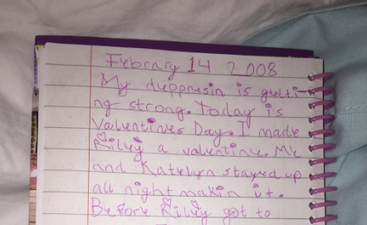 Febrary 14 2008
My duppresin is gutti-
ng strong. Today is
Valentines Day. I made
Riley a valintine. Me
and Katelyn stayed up
all night makin it.
Before Riley got to